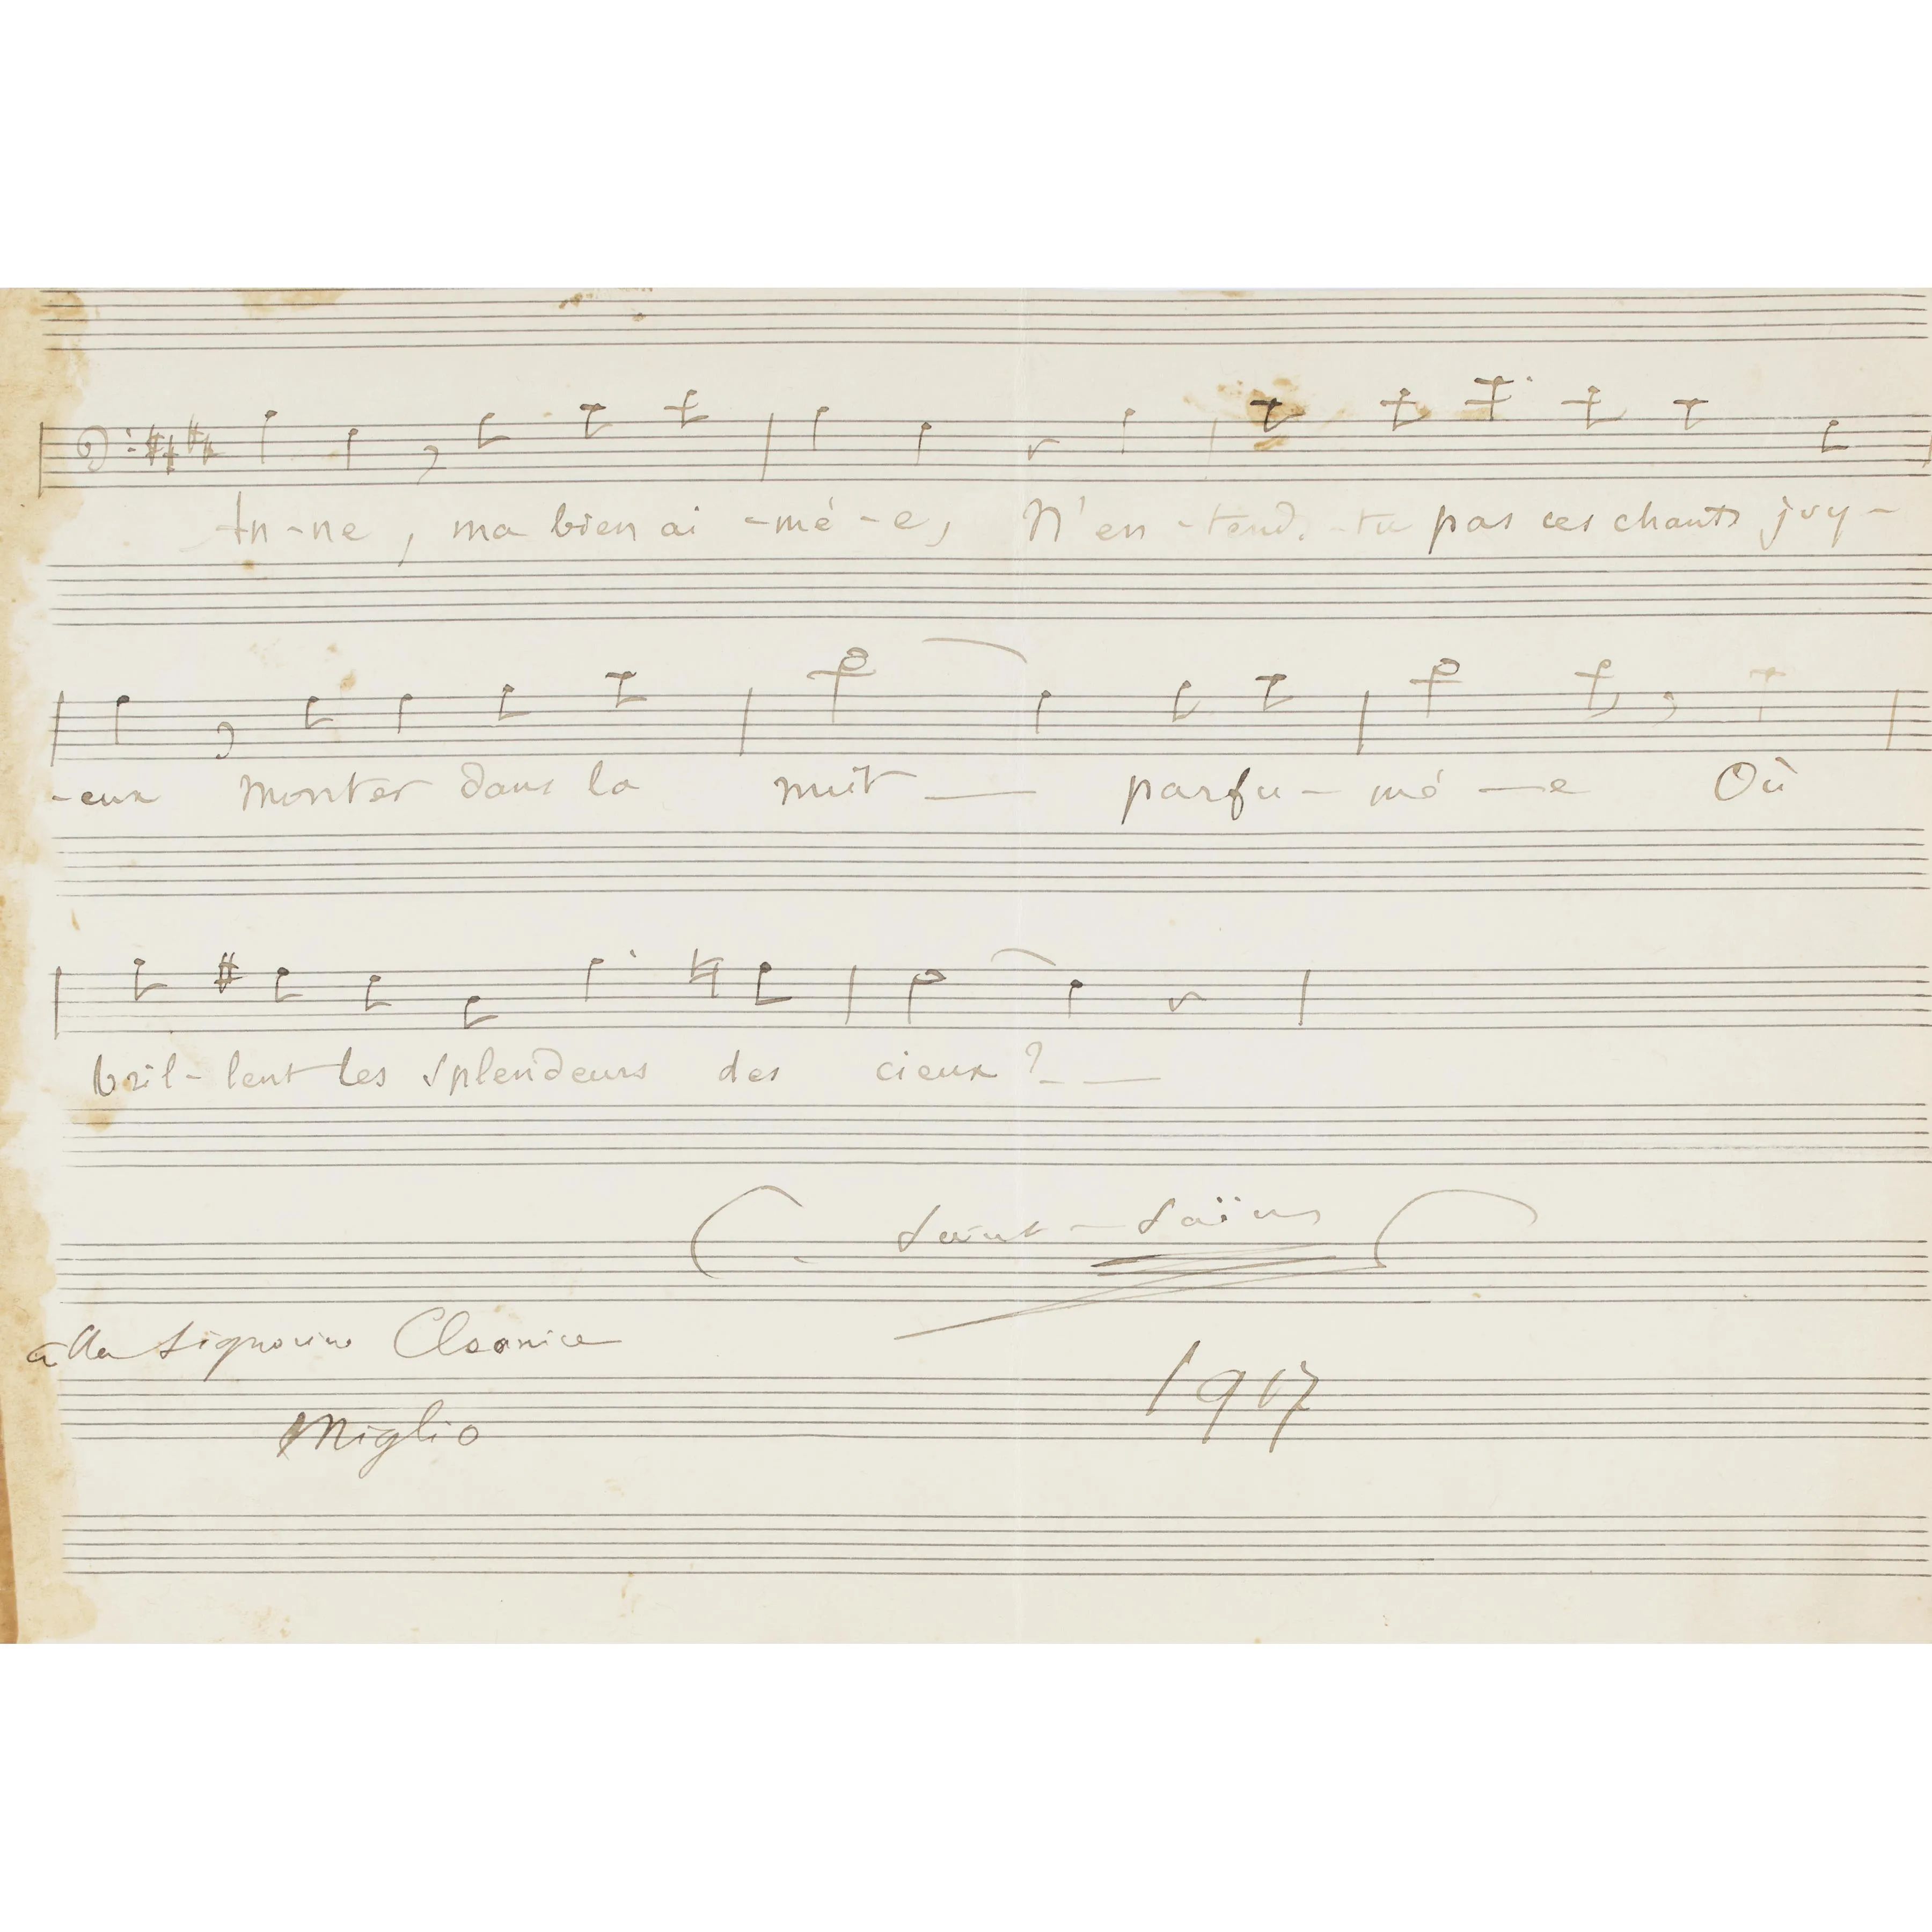 An-ne, ma bien ai-mé-e, N'en-tends-tu pas ces chants joy-
-eux monter dans la nuit parfu-mé-e Où
bril-lent les splendeurs des cieux?
C. Saint-Saëns
alla Signorina Cleonice
1917
Miglio